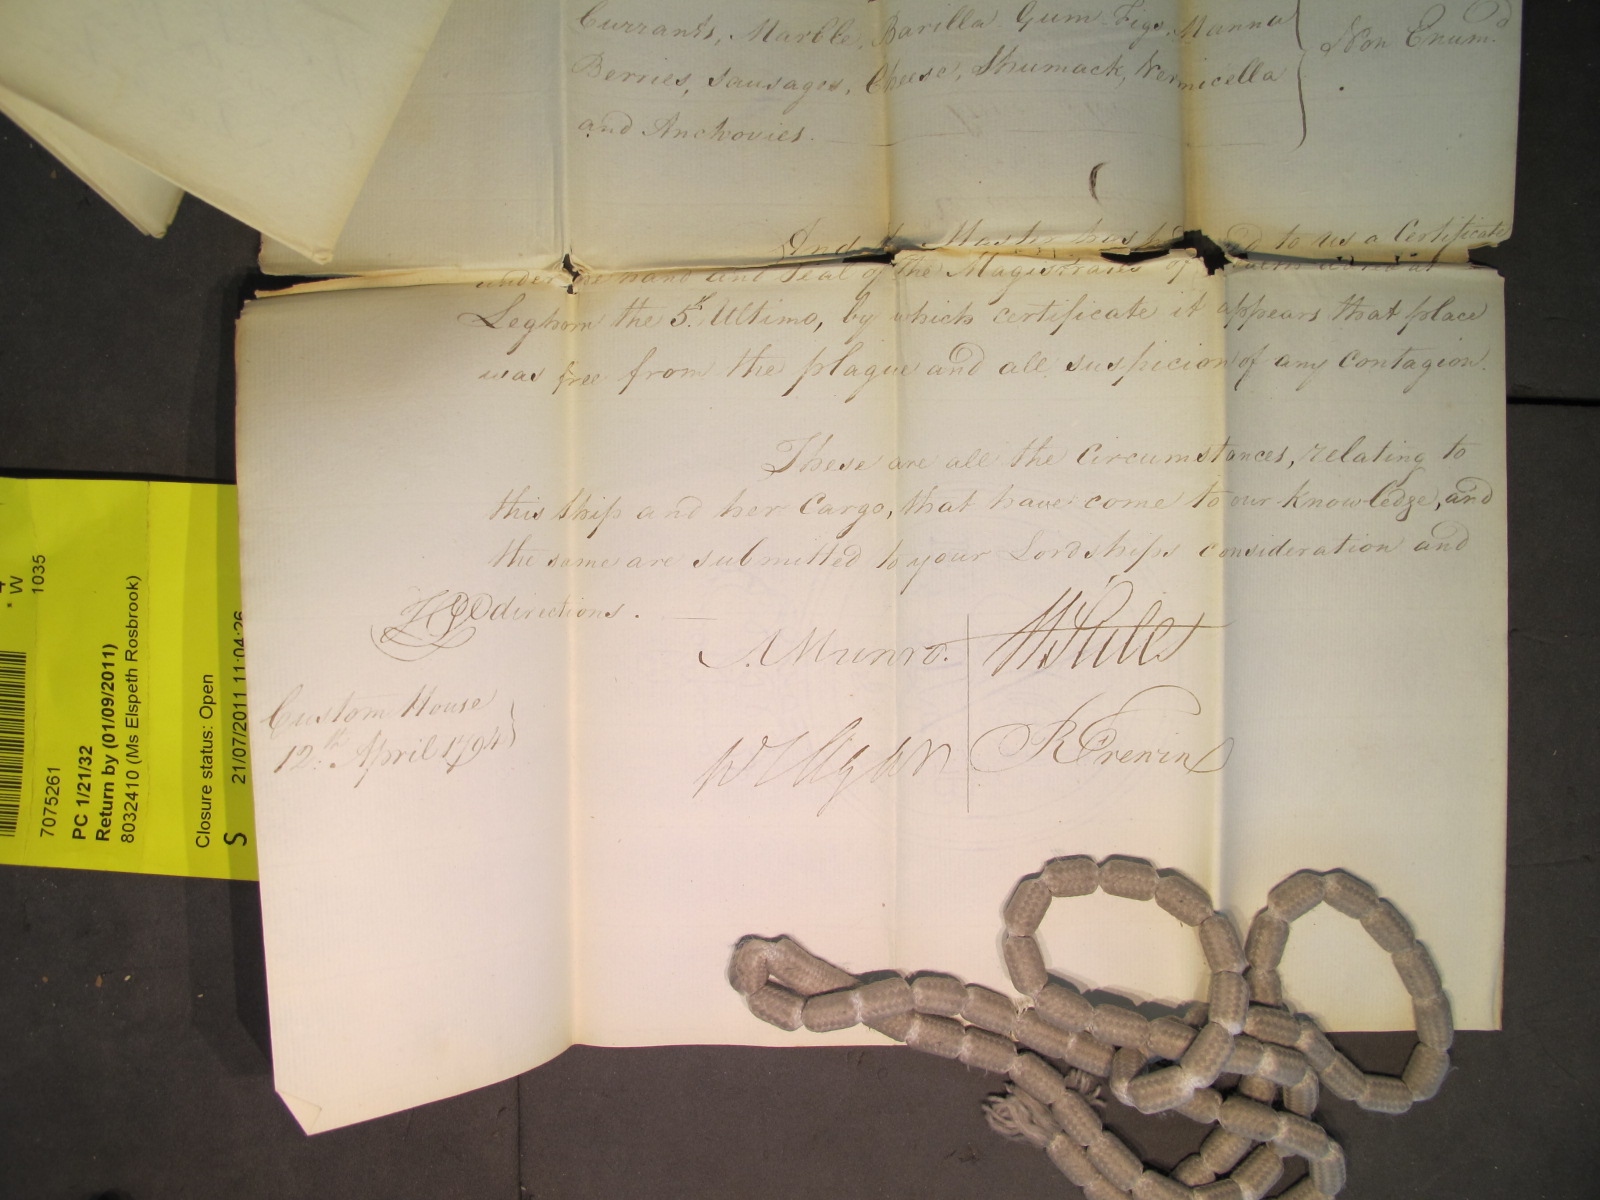 Currants, Marble, Barilla Gum Figs Manna
Berries, Sausages, Cheese, Shumack, Vermicella
and Anchovies.
Non Enum.d
And Master has to us a Certificate
under hand and Seal of the Magistrates of
Leghorn the 5th Ultimo, by which certificate it appears that place
was free from the plague and all suspicion of any contagion.
These are all the Circumstances, relating to
this Ship and her Cargo, that have come to our knowledge, and
the same are submitted to your Lordships consideration and
directions.
A. Munro.
Custom House
12th April 1794
7075261
PC 1/21/32
Return by (01/09/2011)
8032410 (Ms Elspeth Rosbrook)
Closure status: Open
S 21/07/2011 11:04:26
W
1035